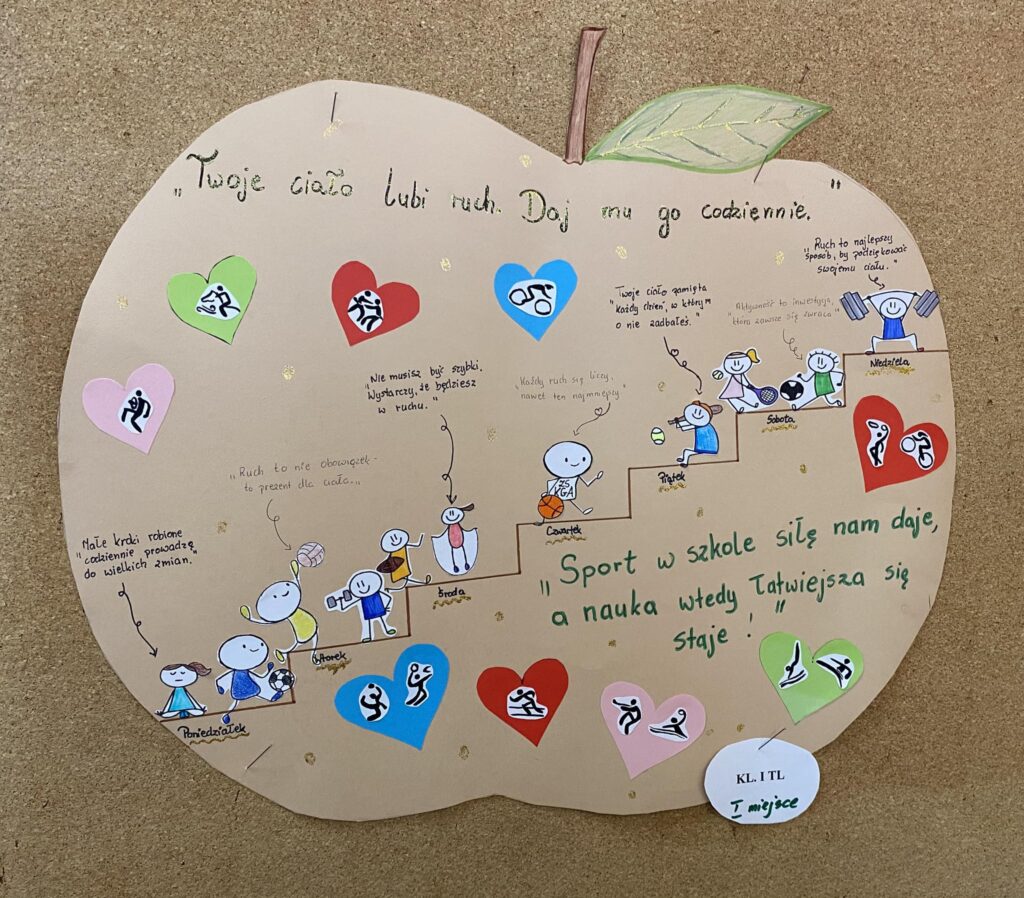 "Twoje ciało lubi ruch. Daj mu go codziennie."
"Ruch to najlepszy
sposób, by podziękować
swojemu ciału."
"Twoje ciało zamięta
każdy dzień, w którym
o nie zadbałeś."
"Aktywność to inwestycja,
która zawsze się zwraca"
"Nie musisz być szybki.
Wystarczy, że będziesz
w ruchu."
"Każdy ruch się liczy,
nawet ten najmniejszy"
"Ruch to nie obowiązek -
to prezent dla ciała."
"Małe kroki robione
codziennie prowadzą
do wielkich zmian."
Niedziela
Sobota
Piątek
ZS
KGA
Czwartek
Środa
Wtorek
Poniedziałek
"Sport w szkole siłę nam daje,
a nauka wtedy łatwiejsza się
staje!"
KL. I TL
I miejsce